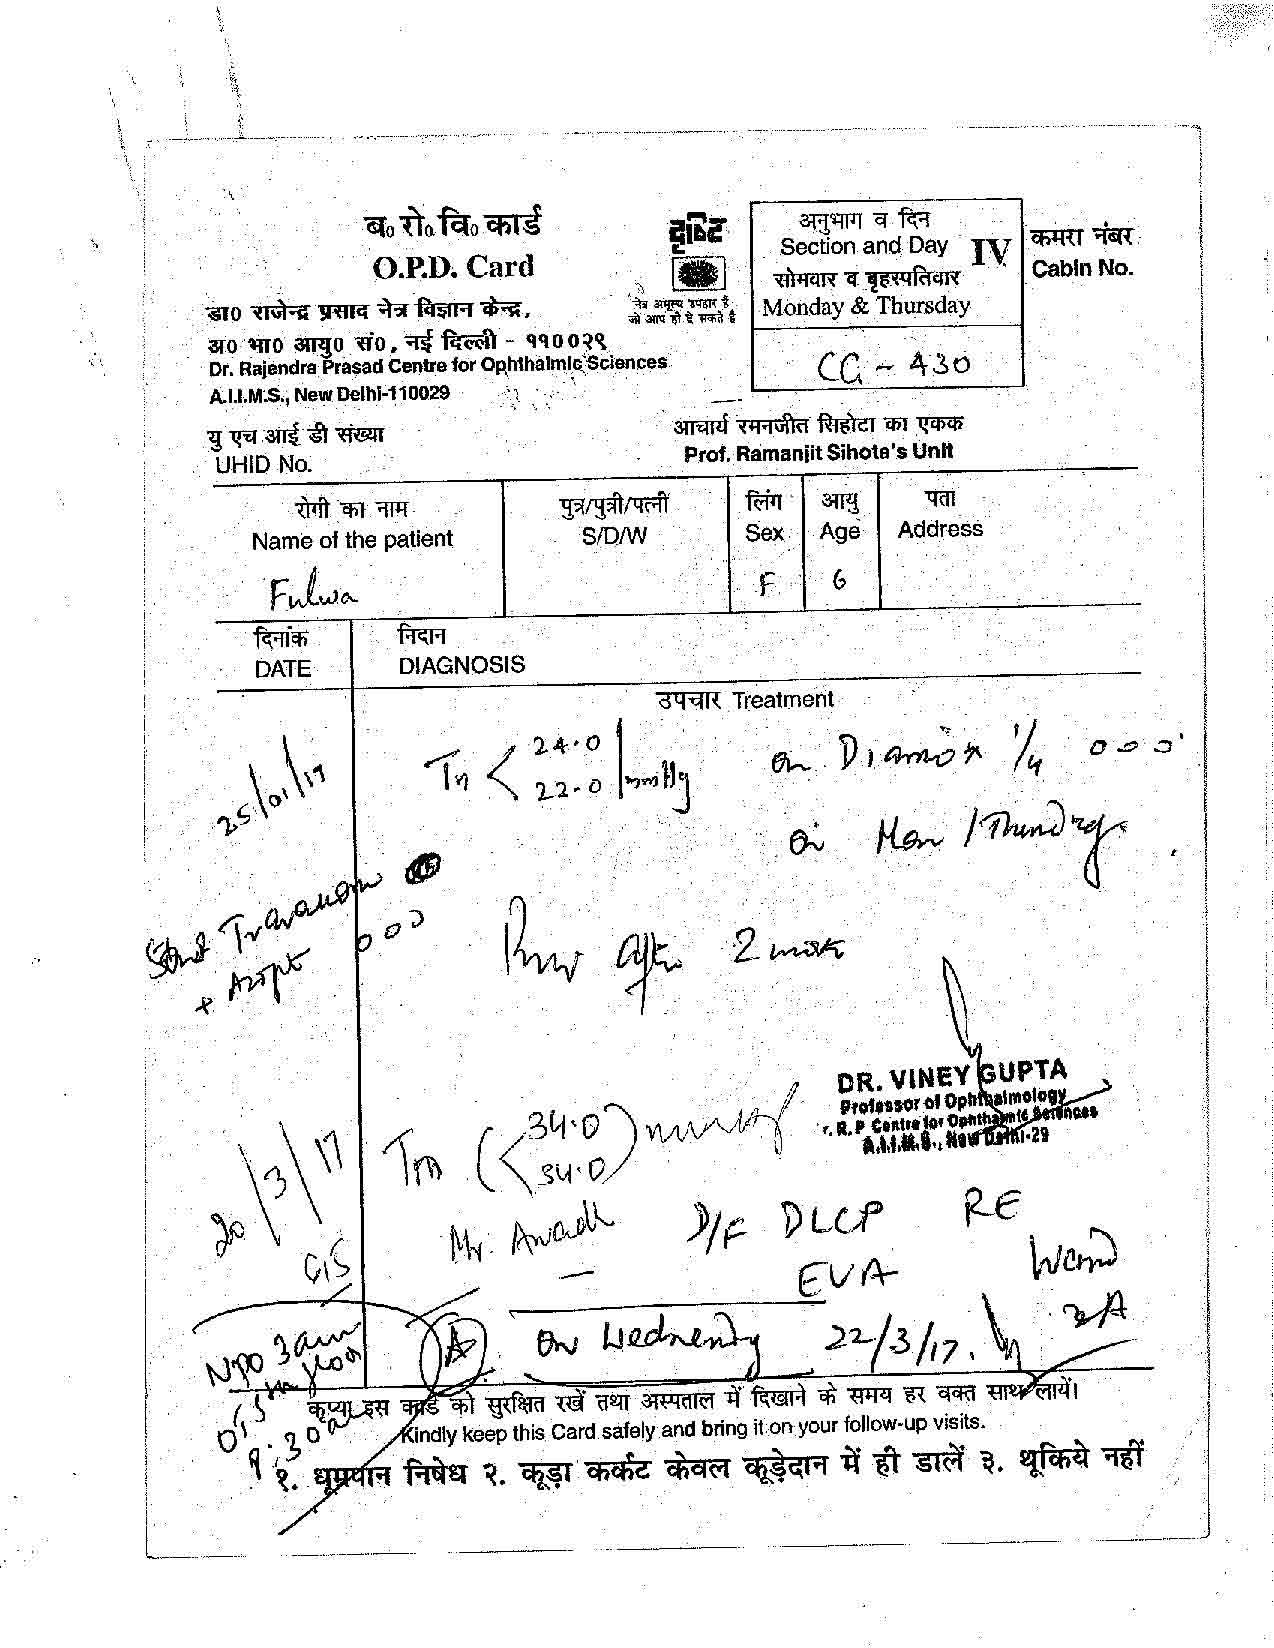 ब० रो० वि० कार्ड
O.P.D. Card
डा० राजेन्द्र प्रसाद नेत्र विज्ञान केन्द्र,
अ० भा० आयु० सं०, नई दिल्ली - ११००२९
Dr. Rajendra Prasad Centre for Ophthalmic Sciences
A.I.I.M.S., New Delhi-110029
दृष्टि
नेत्र अमूल्य उपहार है
जो आप ही दे सकते है
अनुभाग व दिन
Section and Day IV
सोमवार व बृहस्पतिवार
Monday & Thursday
CG - 430
कमरा नंबर
Cabin No.
यु एच आई डी संख्या
UHID No.
आचार्य रमनजीत सिहोटा का एकक
Prof. Ramanjit Sihota's Unit
रोगी का नाम पुत्र/पुत्री/पत्नी लिंग आयु पता
Name of the patient S/D/W Sex Age Address
Fulwa F 6
दिनांक निदान
DATE DIAGNOSIS
उपचार Treatment
25/01/17 Tn < 24.0 / 22.0 mmHg on Diamox 1/4 000
on Mon / Thursday
+ Azopt 000
after 2
DR. VINEY GUPTA
Professor of Ophthalmology
r. R. P Centre for Ophthalmic Sciences
A.I.I.M.S., New Delhi-29
20/3/17 Tn ( < 34.0 / 34.0 )
Mr. Awadh D/F DLCP RE
EVA Ward
A on Wednesday 22/3/17.
NPO 3am
9.30
कृप्या इस कार्ड को सुरक्षित रखें तथा अस्पताल में दिखाने के समय हर वक्त साथ लायें।
Kindly keep this Card safely and bring it on your follow-up visits.
१. धूम्रपान निषेध २. कूड़ा कर्कट केवल कूड़ेदान में ही डालें ३. थूकिये नहीं